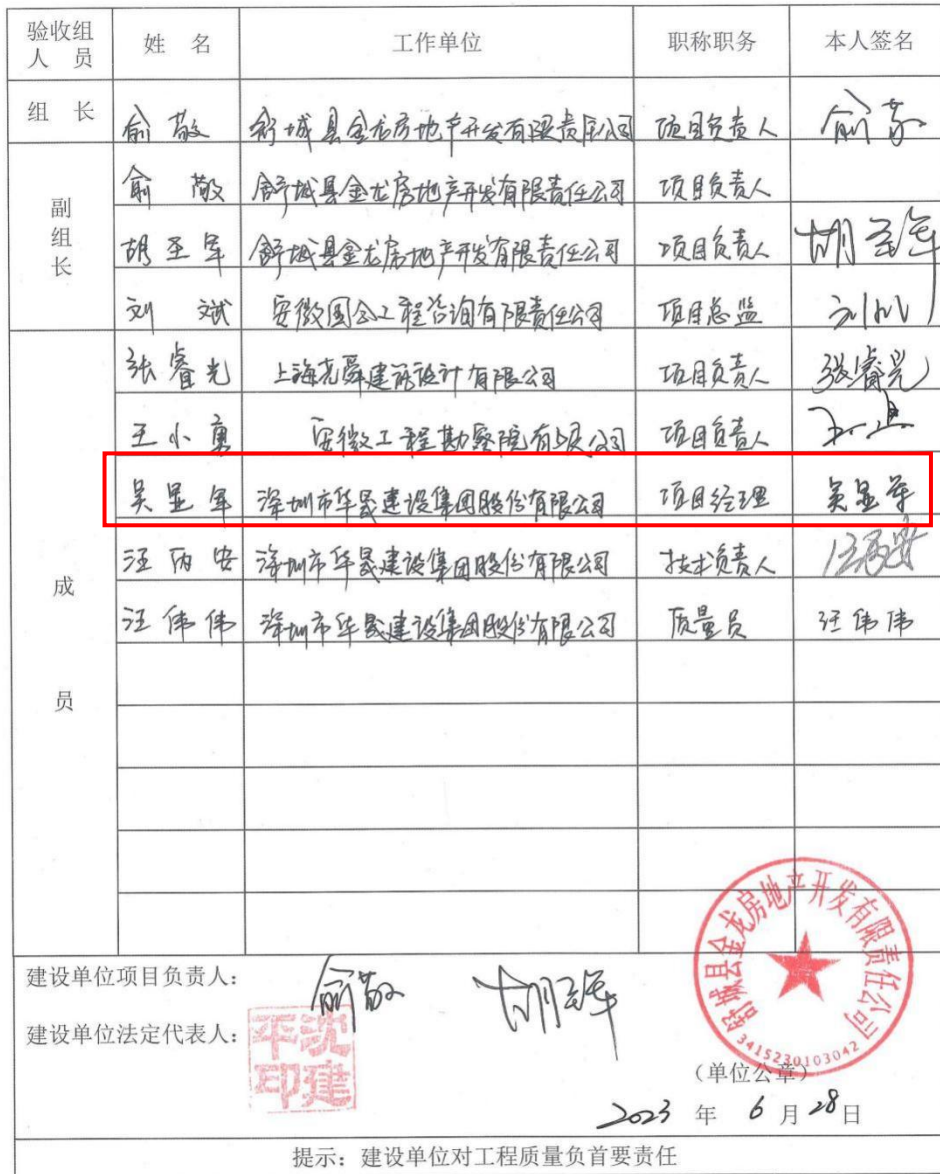 验收组人 员 姓 名 工作单位 职称职务 本人签名
组 长 俞敬 舒城县金龙房地产开发有限责任公司 项目负责人 俞敬
副组长 俞敬 舒城县金龙房地产开发有限责任公司 项目负责人
胡圣军 舒城县金龙房地产开发有限责任公司 项目负责人 胡圣军
刘斌 安徽国公工程咨询有限责任公司 项目总监
成员 张睿光 上海尧舜建筑设计有限公司 项目负责人 张睿光
王小勇 安徽工程勘察院有限公司 项目负责人
吴显军 深圳市华晟建设集团股份有限公司 项目经理 吴显军
汪丙安 深圳市华晟建设集团股份有限公司 技术负责人 汪丙安
汪伟伟 深圳市华晟建设集团股份有限公司 质量员 汪伟伟
建设单位项目负责人： 俞敬 胡圣军
建设单位法定代表人： 沈建平印
舒城县金龙房地产开发有限责任公司
3415230103042
（单位公章）
2023 年 6 月 28 日
提示：建设单位对工程质量负首要责任